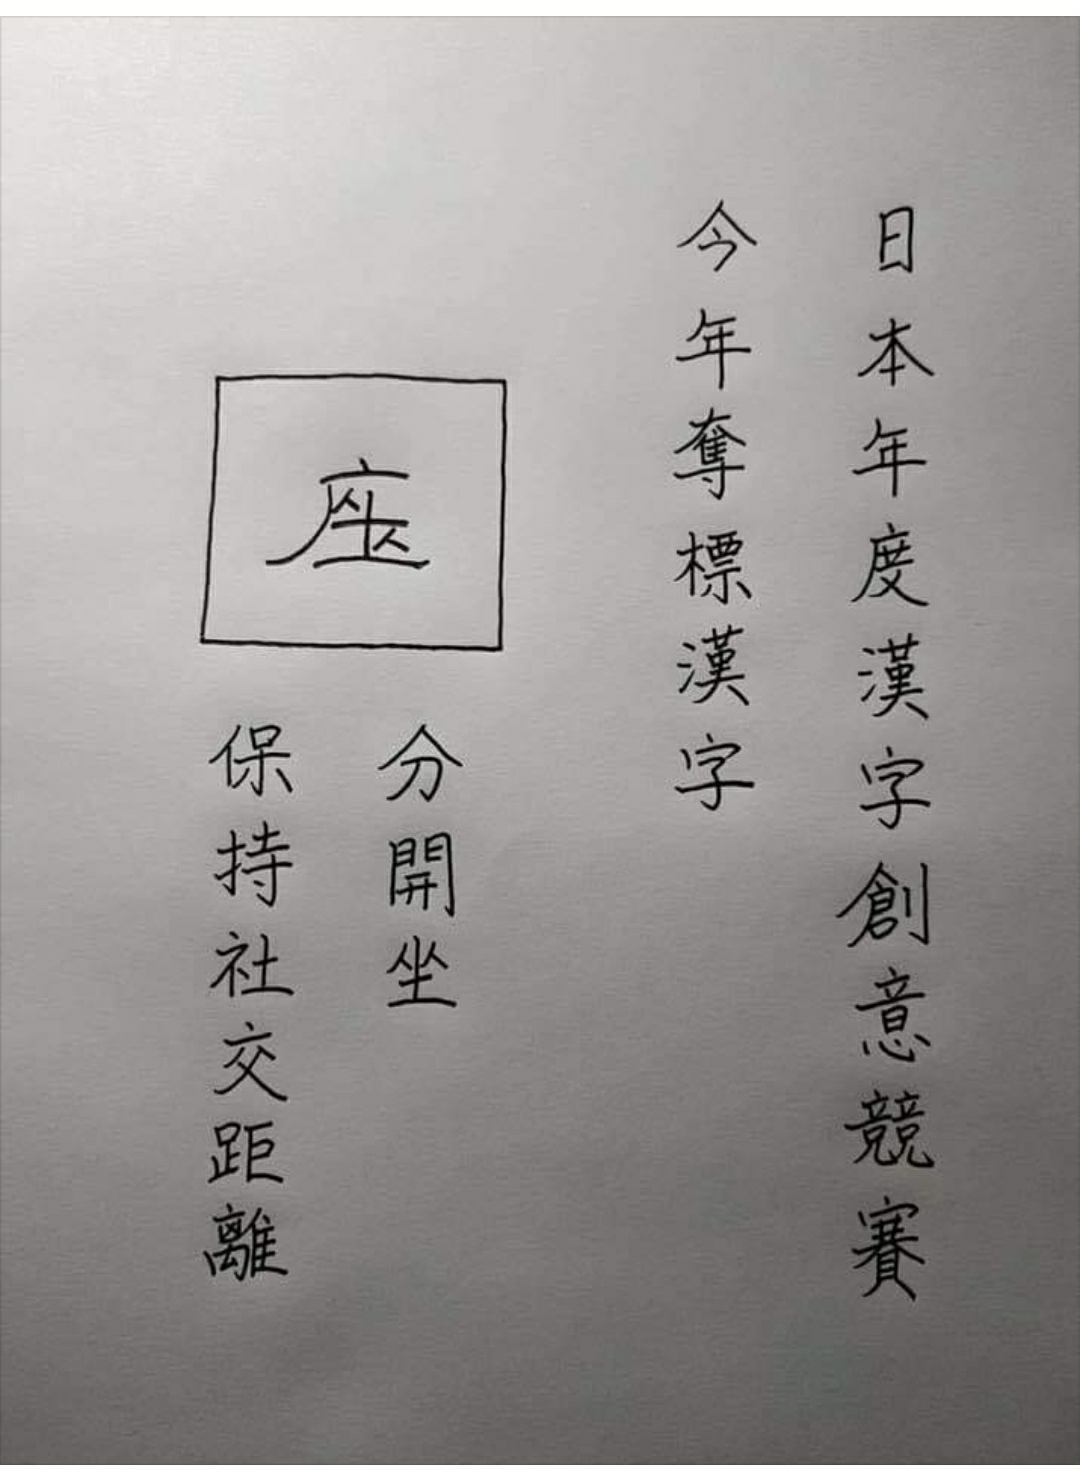 日本年度漢字創意競賽
今年奪標漢字
座
分開坐
保持社交距離